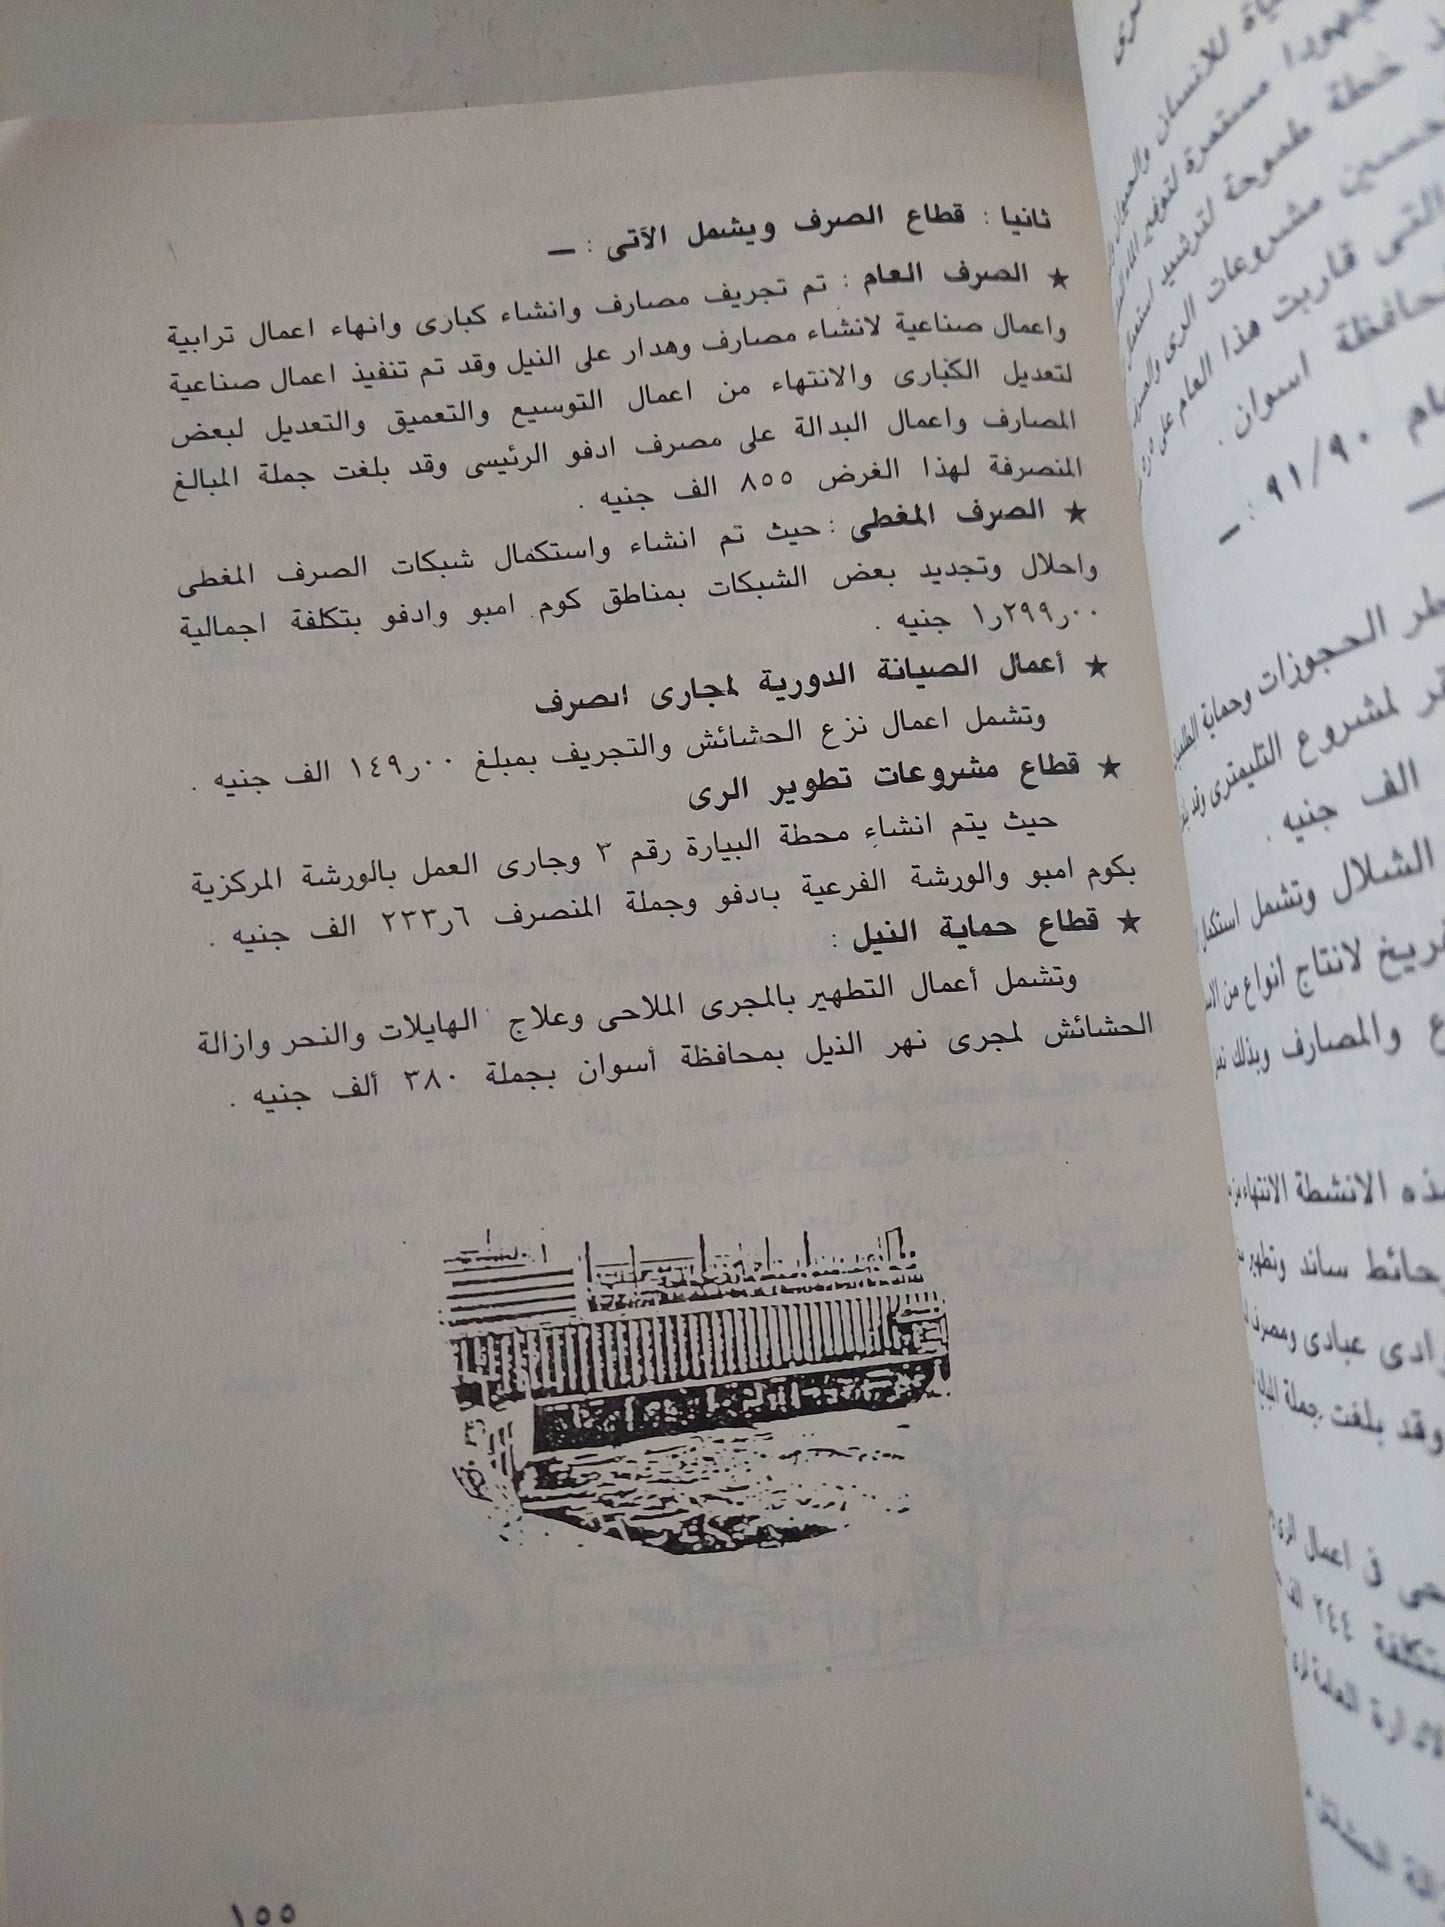 ثانيا : قطاع الصرف ويشمل الآتى : ــ
★ الصرف العام : تم تجريف مصارف وانشاء كبارى وانهاء اعمال ترابية
واعمال صناعية لانشاء مصارف وهدار على النيل وقد تم تنفيذ اعمال صناعية
لتعديل الكبارى والانتهاء من اعمال التوسيع والتعميق والتعديل لبعض
المصارف واعمال البدالة على مصرف ادفو الرئيسى وقد بلغت جملة المبالغ
المنصرفة لهذا الغرض ٨٥٥ الف جنيه .
★ الصرف المغطى : حيث تم انشاء واستكمال شبكات الصرف المغطى
واحلال وتجديد بعض الشبكات بمناطق كوم امبو وادفو بتكلفة اجمالية
٠٠ر٢٩٩ر١ جنيه .
★ أعمال الصيانة الدورية لمجارى الصرف
وتشمل اعمال نزع الحشائش والتجريف بمبلغ ٠٠ر١٤٩ الف جنيه .
★ قطاع مشروعات تطوير الرى
حيث يتم انشاء محطة البيارة رقم ٣ وجارى العمل بالورشة المركزية
بكوم امبو والورشة الفرعية بادفو وجملة المنصرف ٦ر٢٣٣ الف جنيه .
★ قطاع حماية النيل :
وتشمل أعمال التطهير بالمجرى الملاحى وعلاج الهايلات والنحر وازالة
الحشائش لمجرى نهر الذيل بمحافظة أسوان بجملة ٣٨٠ ألف جنيه .
١٥٥
للانسان
مستمرة
خطة طموحة لترشيد
مشروعات الرى
التى قاربت هذا العام على
اسوان .
٩١/٩٠ : ــ
الحجوزات وحماية
لمشروع التليمترى وقد
الف جنيه .
الشلال وتشمل استكمال
لانتاج انواع من
والمصارف وبذلك
الانشطة الانتهاء
ساند وتطهير
عبادى ومصرف
وقد بلغت جملة
فى اعمال الرى
٢٤٤ الف
العامة